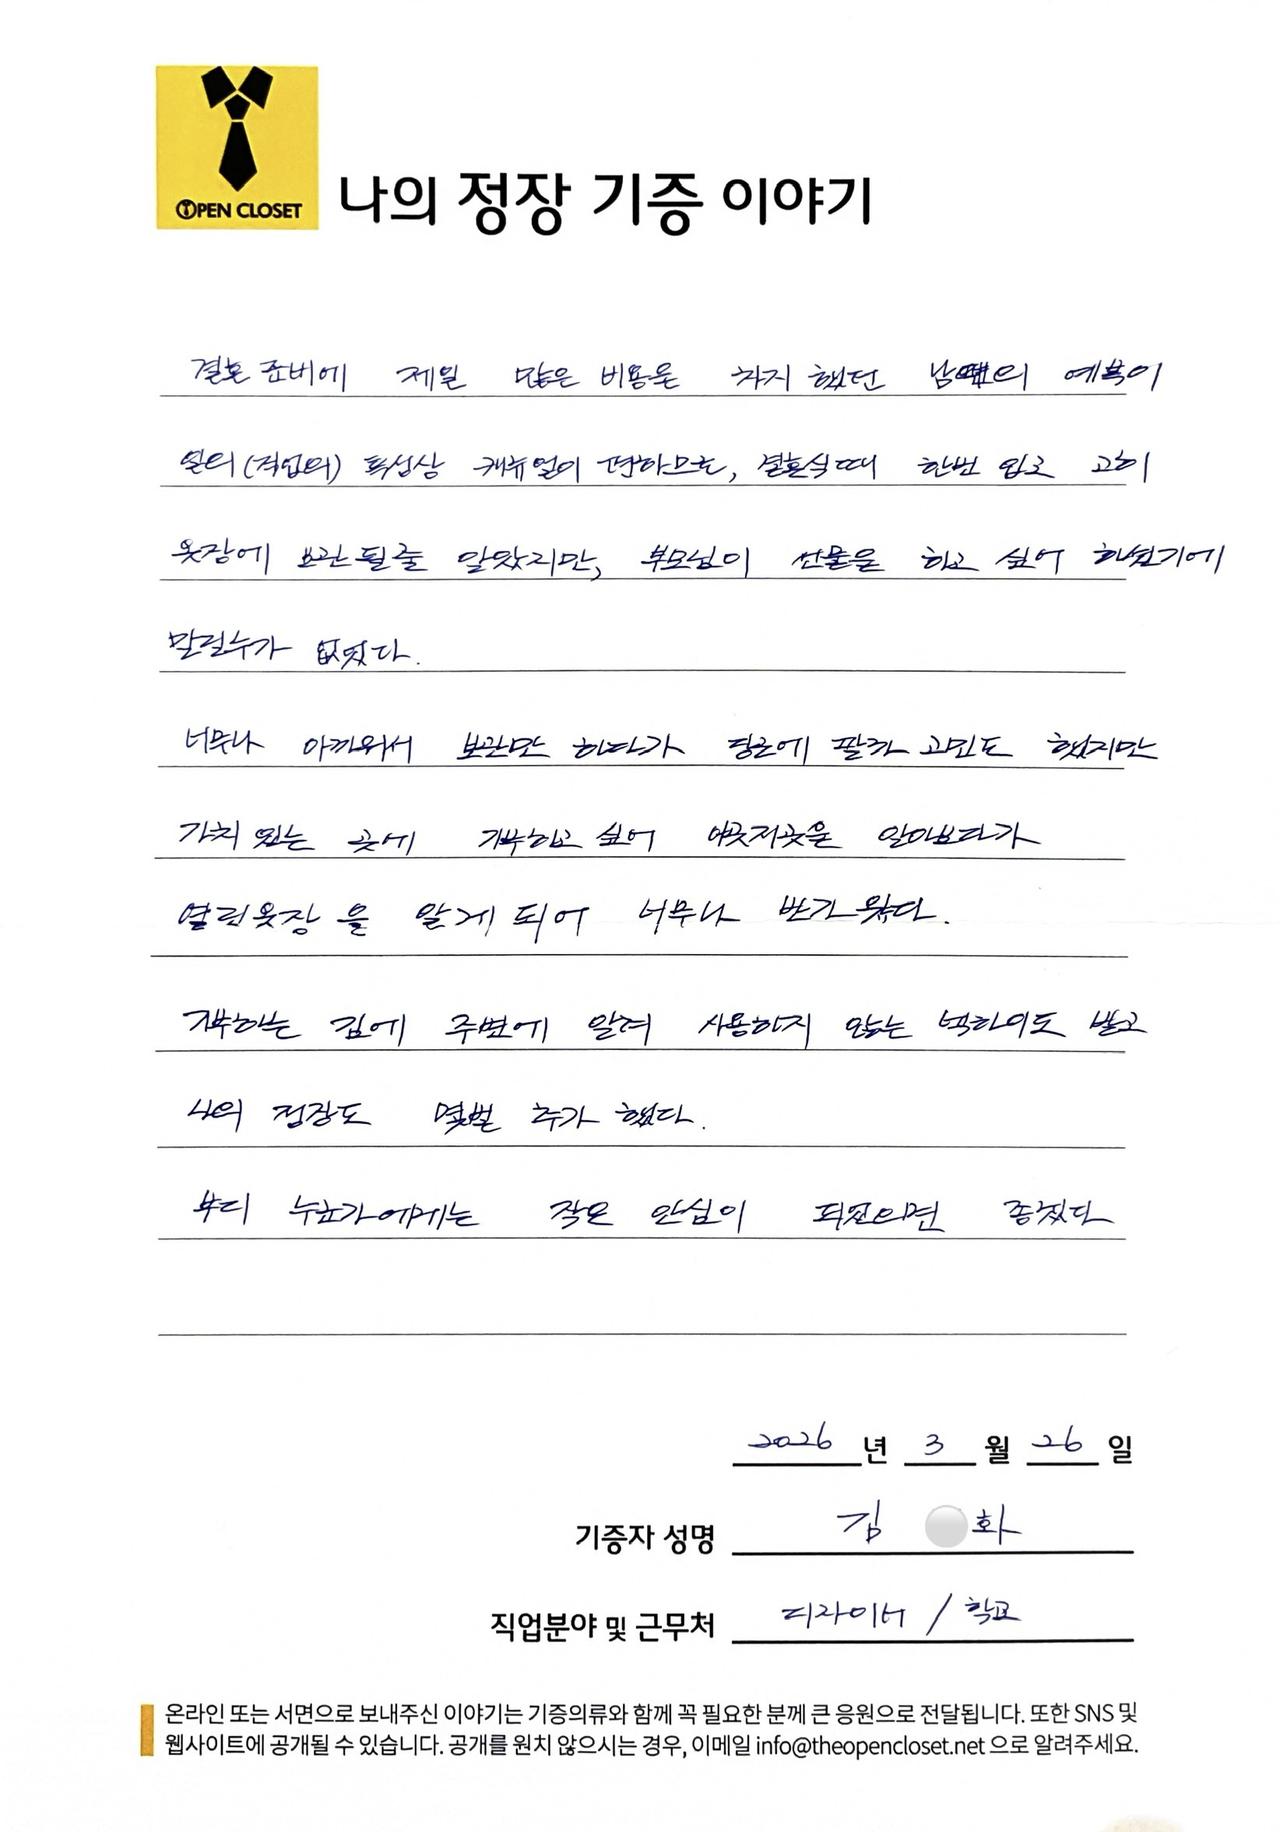 OPEN CLOSET
나의 정장 기증 이야기
결혼 준비에 제일 많은 비용을 차지 했던 남편의 예복이
일의 (직업의) 특성상 캐쥬얼이 편하므로, 결혼식때 한번 입고 고이
옷장에 보관될줄 알았지만, 부모님이 선물을 하고 싶어 하셨기에
말릴수가 없었다.
너무나 아까워서 보관만 하다가 당근에 팔까 고민도 했지만
가치 있는 곳에 기부하고 싶어 이곳저곳을 알아보다가
열린옷장을 알게 되어 너무나 반가웠다.
기부하는 김에 주변에 알려 사용하지 않는 넥타이도 받고
나의 정장도 몇벌 추가 했다.
부디 누군가에게는 작은 안심이 되었으면 좋겠다
2026 년 3 월 26 일
기증자 성명 김 화
직업분야 및 근무처 디자이너 / 학교
온라인 또는 서면으로 보내주신 이야기는 기증의류와 함께 꼭 필요한 분께 큰 응원으로 전달됩니다. 또한 SNS 및
웹사이트에 공개될 수 있습니다. 공개를 원치 않으시는 경우, 이메일 info@theopencloset.net 으로 알려주세요.